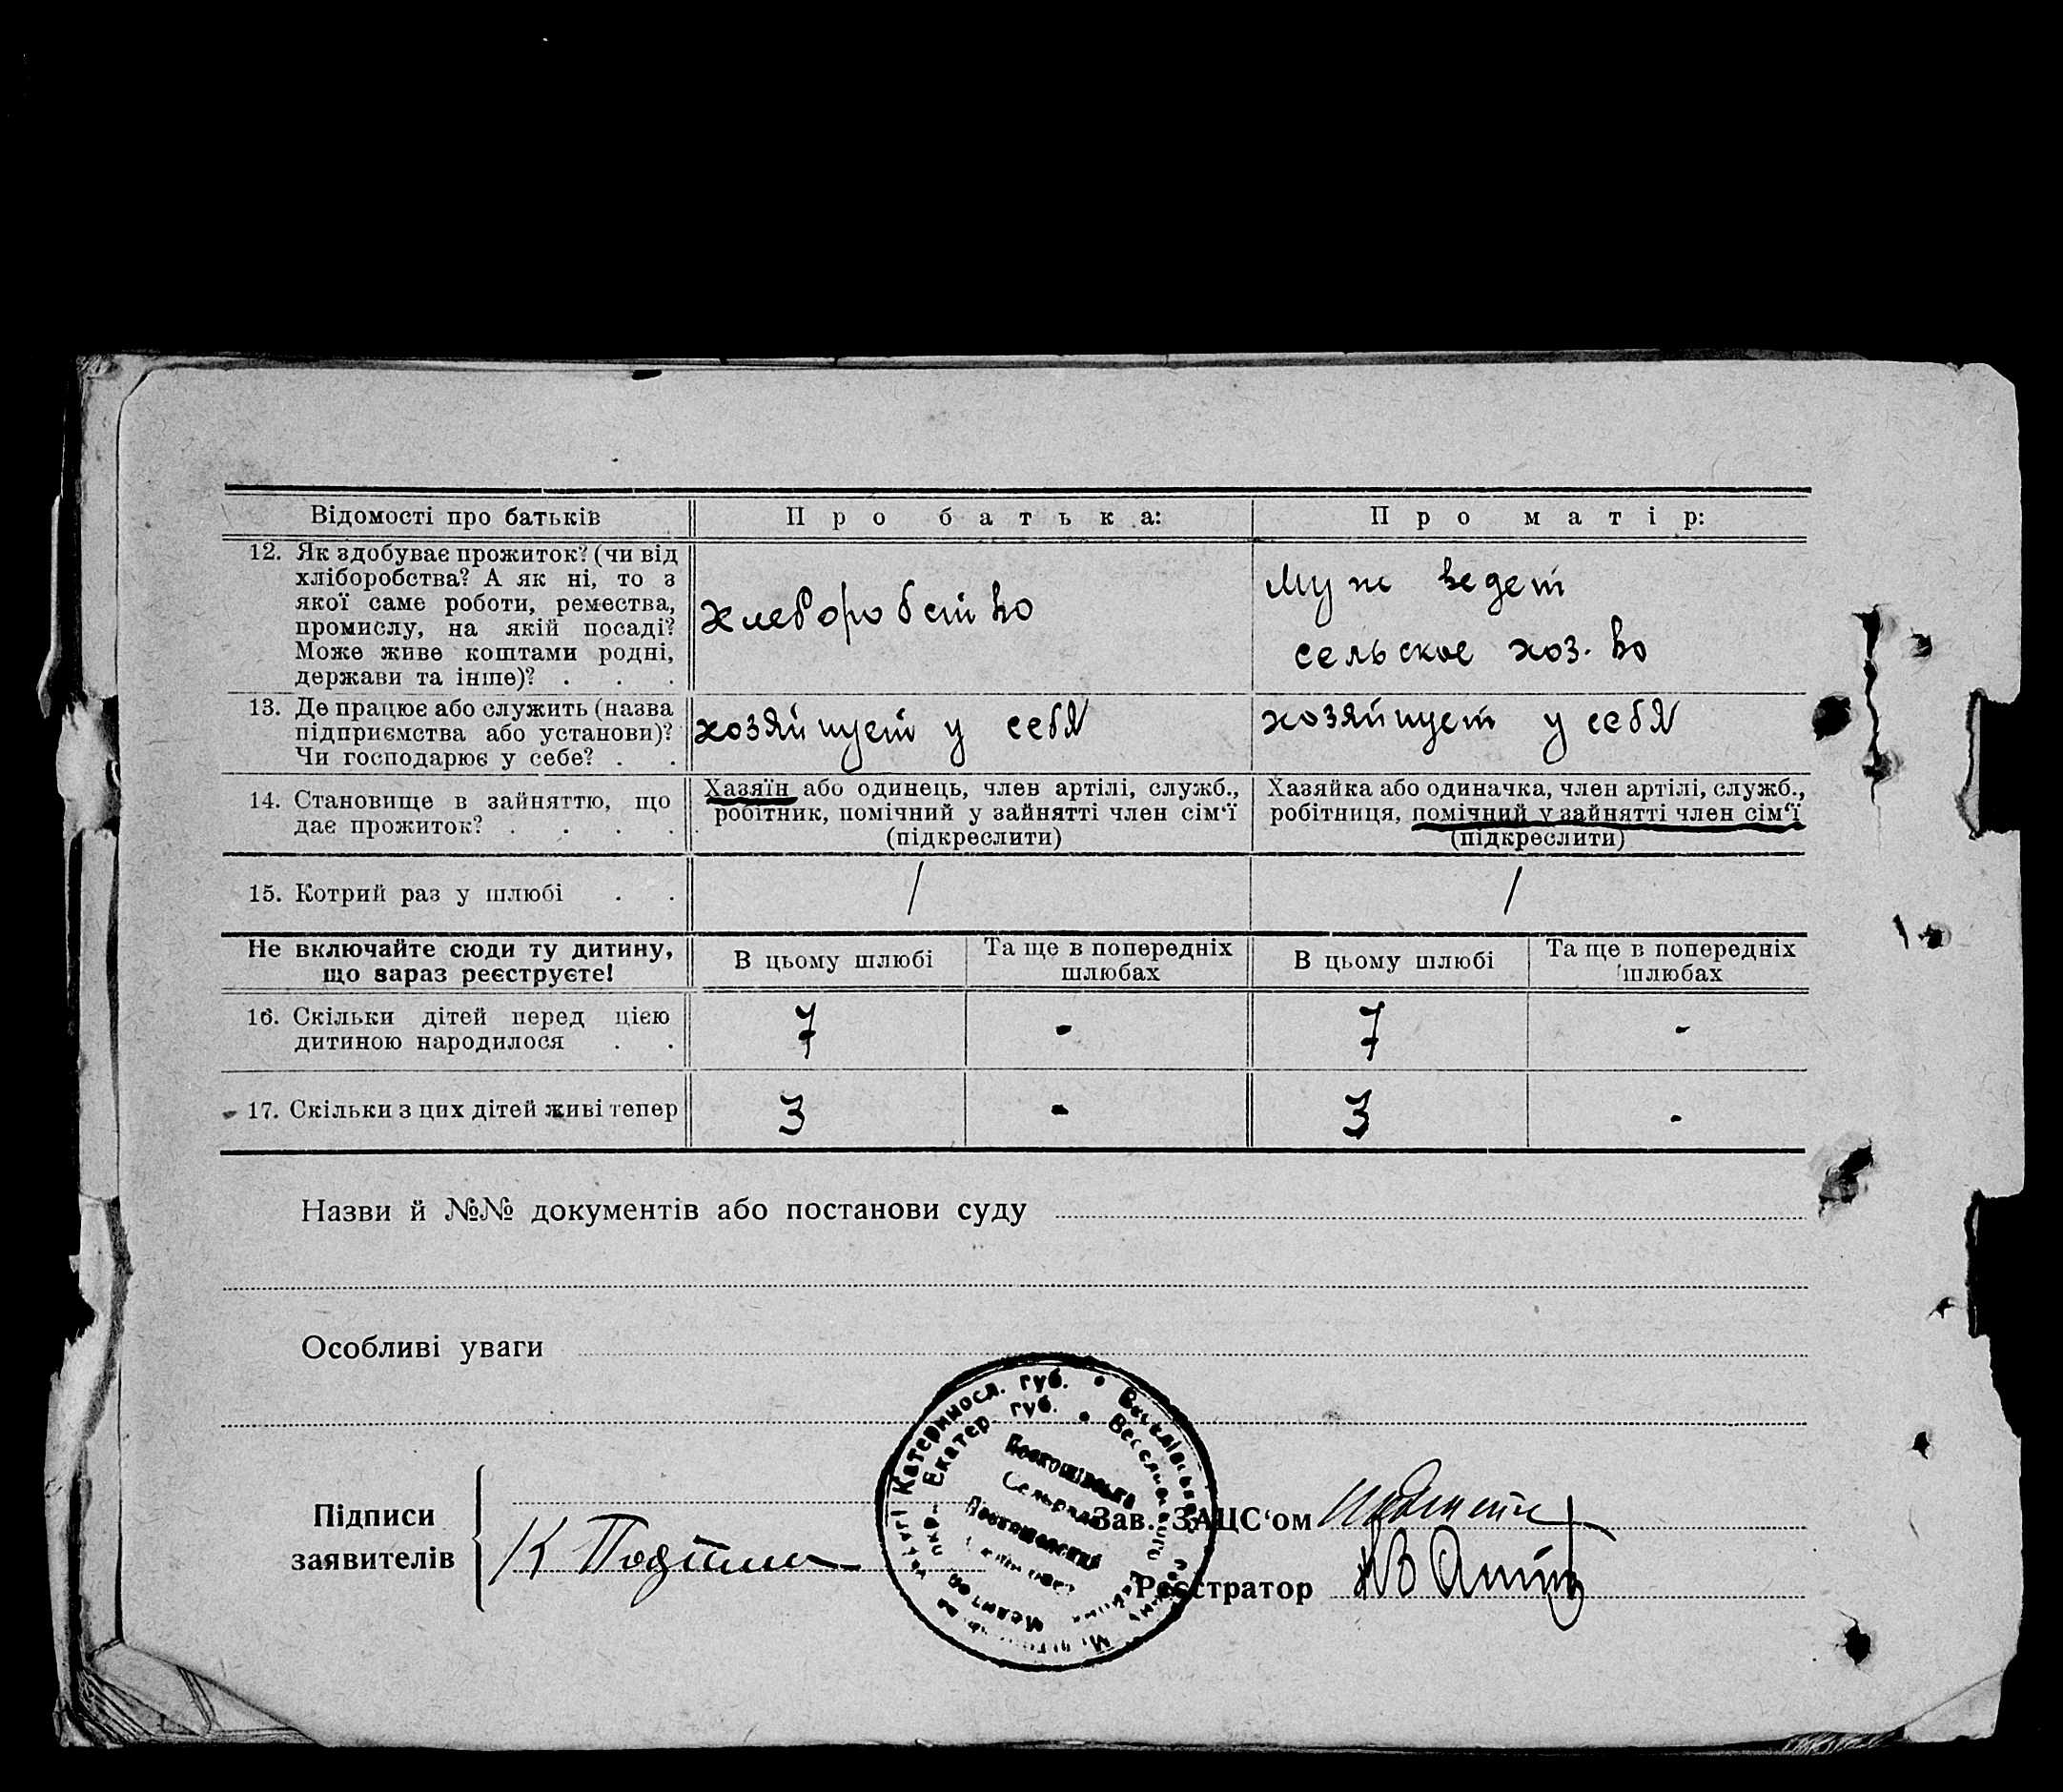 Відомості про батьків
Про батька:
Про матір:
12. Як здобуває прожиток? (чи від
хліборобства? А як ні, то з
якої саме роботи, ремества,
промислу, на якій посаді?
Може живе коштами родні,
держави та інше)? . . .
хлеборобство
Муж ведет
сельское хоз-во
13. Де працює або служить (назва
підприємства або установи)?
Чи господарює у себе? . .
хозяйнует у себя
хозяйнует у себя
14. Становище в зайняттю, що
дає прожиток? . . . .
Хазяїн або одинець, член артілі, служб.,
робітник, помічний у зайнятті член сім‘ї
(підкреслити)
Хазяйка або одиначка, член артілі, служб.,
робітниця, помічний у зайнятті член сім‘ї
(підкреслити)
15. Котрий раз у шлюбі . .
1
1
Не включайте сюди ту дитину,
що зараз реєструєте!
В цьому шлюбі
Та ще в попередніх
шлюбах
В цьому шлюбі
Та ще в попередніх
шлюбах
16. Скільки дітей перед цією
дитиною народилося . .
7
-
7
-
17. Скільки з цих дітей живі тепер
3
-
3
-
Назви й №№ документів або постанови суду
Особливі уваги
Катериносл. губ. • Веселівська
Екатер. губ. •
Сельрада
Підписи
заявителів
К
Зав. ЗАЦС‘ом
Реєстратор